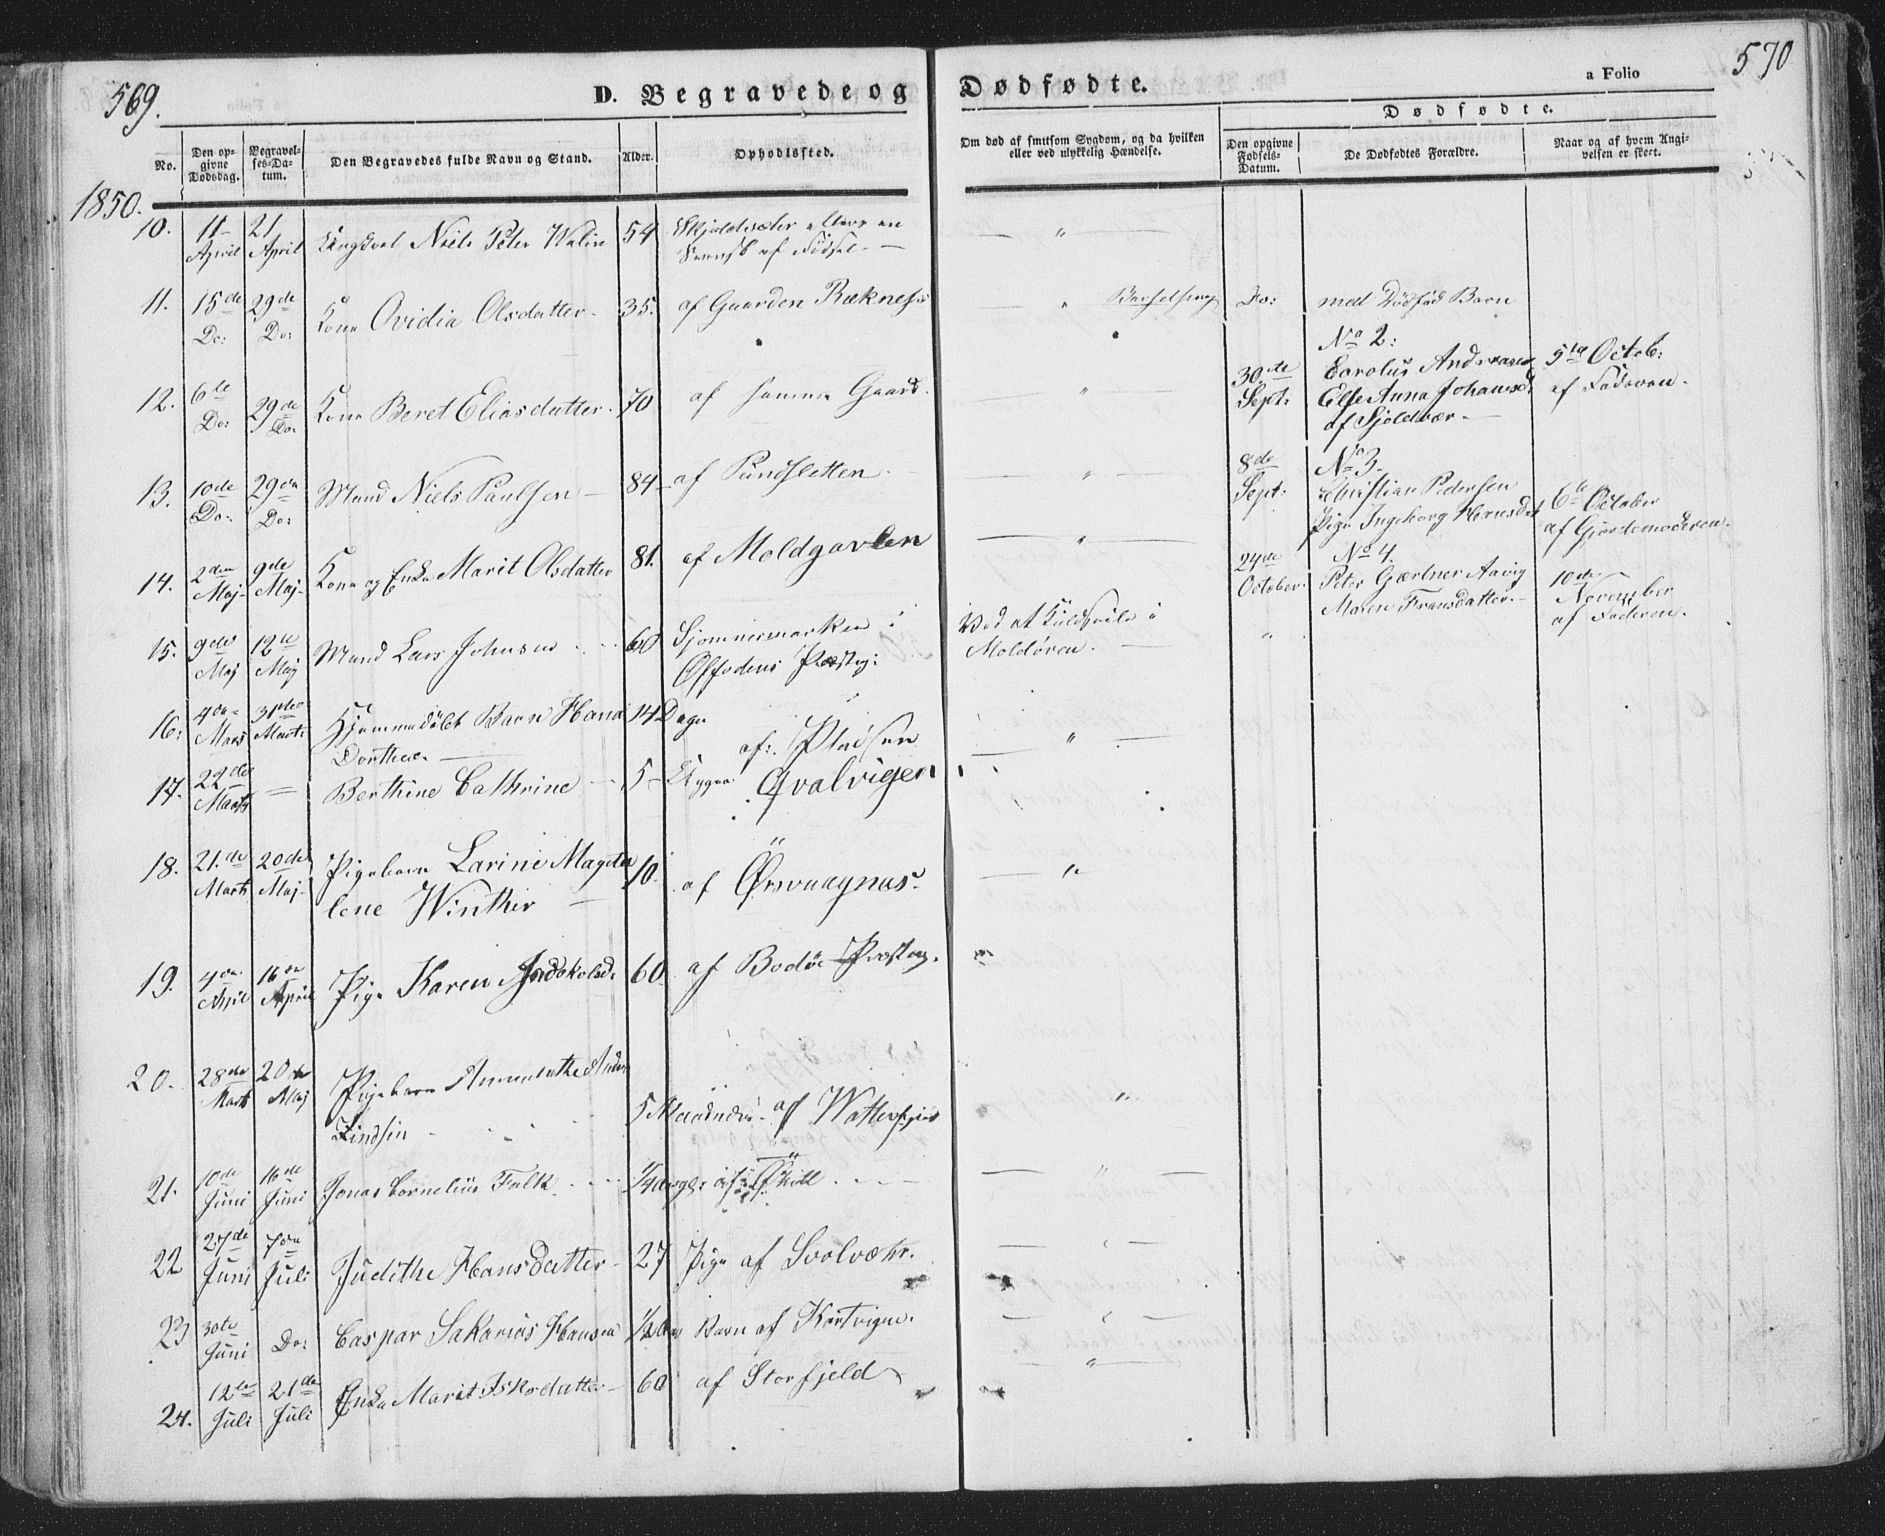 569.
D. Begravede og
Dødfødte.
a Folio
570
No.
Den opgivne Dødsdag.
Begravelses-Datum.
Den Begravedes fulde Navn og Stand.
Alder.
Opholdssted.
Om død af smitsom Sygdom, og da hvilken eller ved ulykkelig Hændelse.
Dødfødte.
Den opgivne Fødsels-Datum.
De Dødfødtes Forældre.
Naar og af hvem Angivelsen er skeet.
1850.
10. 11 April 21 April Niels Peter Walin 54
Svensk af Fødsel
11. 15de Do: 29de Do: Kone Ovidia Olsdatter 35. af Gaarden Ræknes Barselseng Do: med Dødfød Barn
12. 6te Do: 29de Do: Kone Beret Eliasdatter 70 af samme Gaard.
No 2:
30te Sept: Carolus Andreas 5te Octob:
Else Anna Johansd. af Faderen.
13. 10de Do: 29de Do: Mand Niels Paulsen 84 af Pundsletten
8de Sept: No 3.
Christian Pedersen
Pige Ingeborg Hansd. 6te October
af Gjordemoderen.
14. 2den Maj 9de Maj Kone og Enke Marit Olsdatter 81. af Moldgavlen
24de October No 4.
Peter Gærtner Aavig
Maren Fransdatter 10de November
af Faderen.
15. 9de Maj 12te Maj Mand Lars Johnsen 60 Sjømnermarken i
Ofodens Præstegj: Ved et Kuldseile i
Moldøren.
16. 4de Mars 31te Marts Hjemmedøbt Barn Hana 14 Dage
Dorthea
17. 22de Marts Berthine Cathrine 5 Qvalvigen
18. 21de Marts 20de Maj Pigebarn Larine Magda
lene Winther 10. af Ørsvaagnæs.
19. 4de April 16de April Pige Karen 60 af Bodøe Præsteg.
20. 28de Marts 20de Maj Pigebarn
Lindsin 5 Maaneder af
21. 10de Juni 16de Juni Jonas Cornelius Falk 1/4
22 27de Juni 7de Juli Judithe Hansdatter 27 Pige af Svolvæhr.
23 30te Juni Do: Caspar Sakarias Hansen 1/2 Barn af
24. 12te Juli 21de Juli Enke Marit 60 af Storfjeld